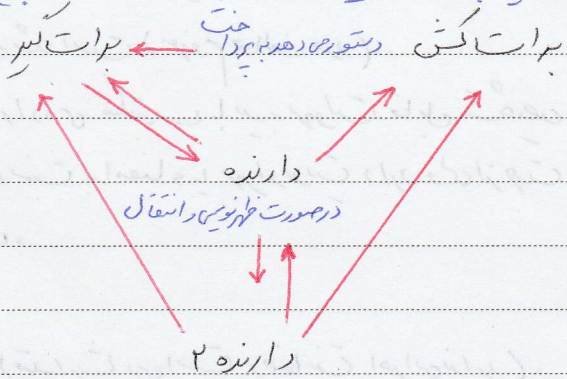 براتکش دستور می دهد به پرداخت براتگیر
دارنده
در صورت ظهرنویسی و انتقال
دارنده ۲